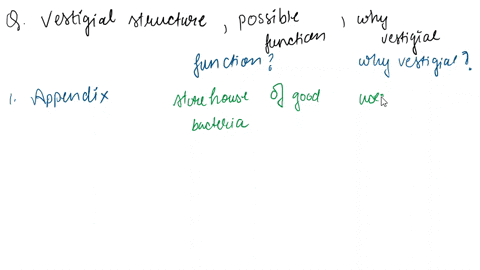 Q. Vestigial structure, possible function, why vestigial
function? why vestigial?
1. Appendix storehouse of good
bacteria